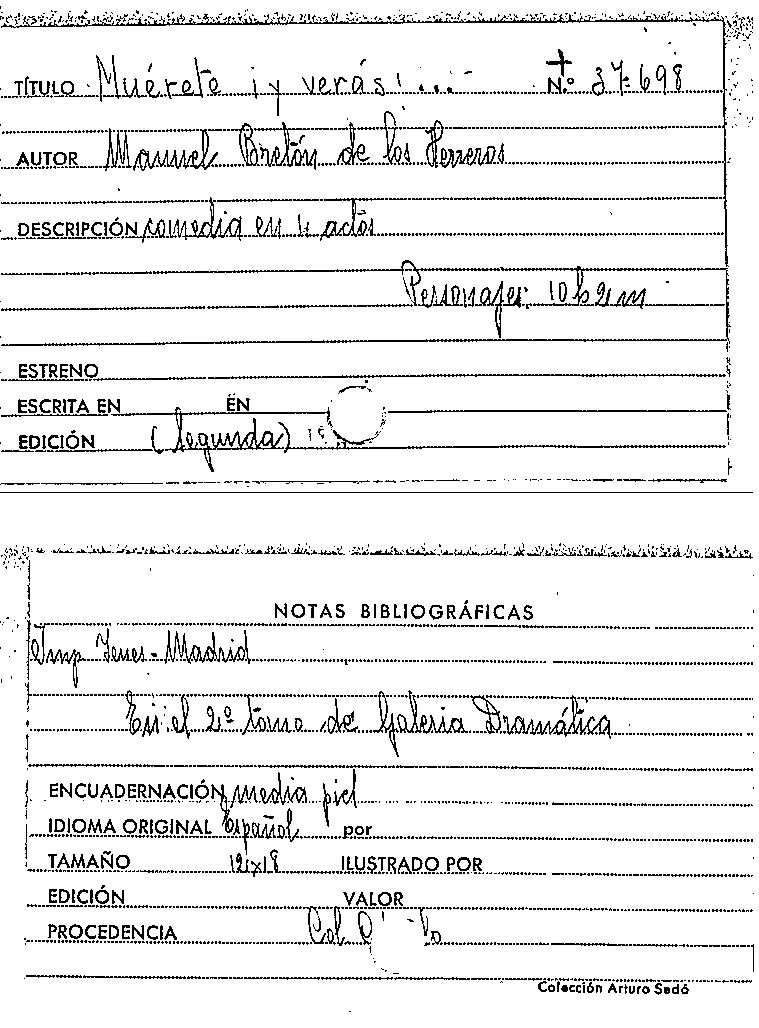 TÍTULO Muérete ¡y verás!... N.º 37.698
AUTOR Manuel Bretón de los Herreros
DESCRIPCIÓN comedia en 4 actos
Personajes: 10 h 2 m
ESTRENO
ESCRITA EN EN
EDICIÓN (Segunda)
NOTAS BIBLIOGRÁFICAS
Imp Yenes - Madrid
En el 2º tomo de Galeria Dramática
ENCUADERNACIÓN media piel
IDIOMA ORIGINAL Español por
TAMAÑO 12x18 ILUSTRADO POR
EDICIÓN VALOR
PROCEDENCIA Col.
Colección Arturo Sedó